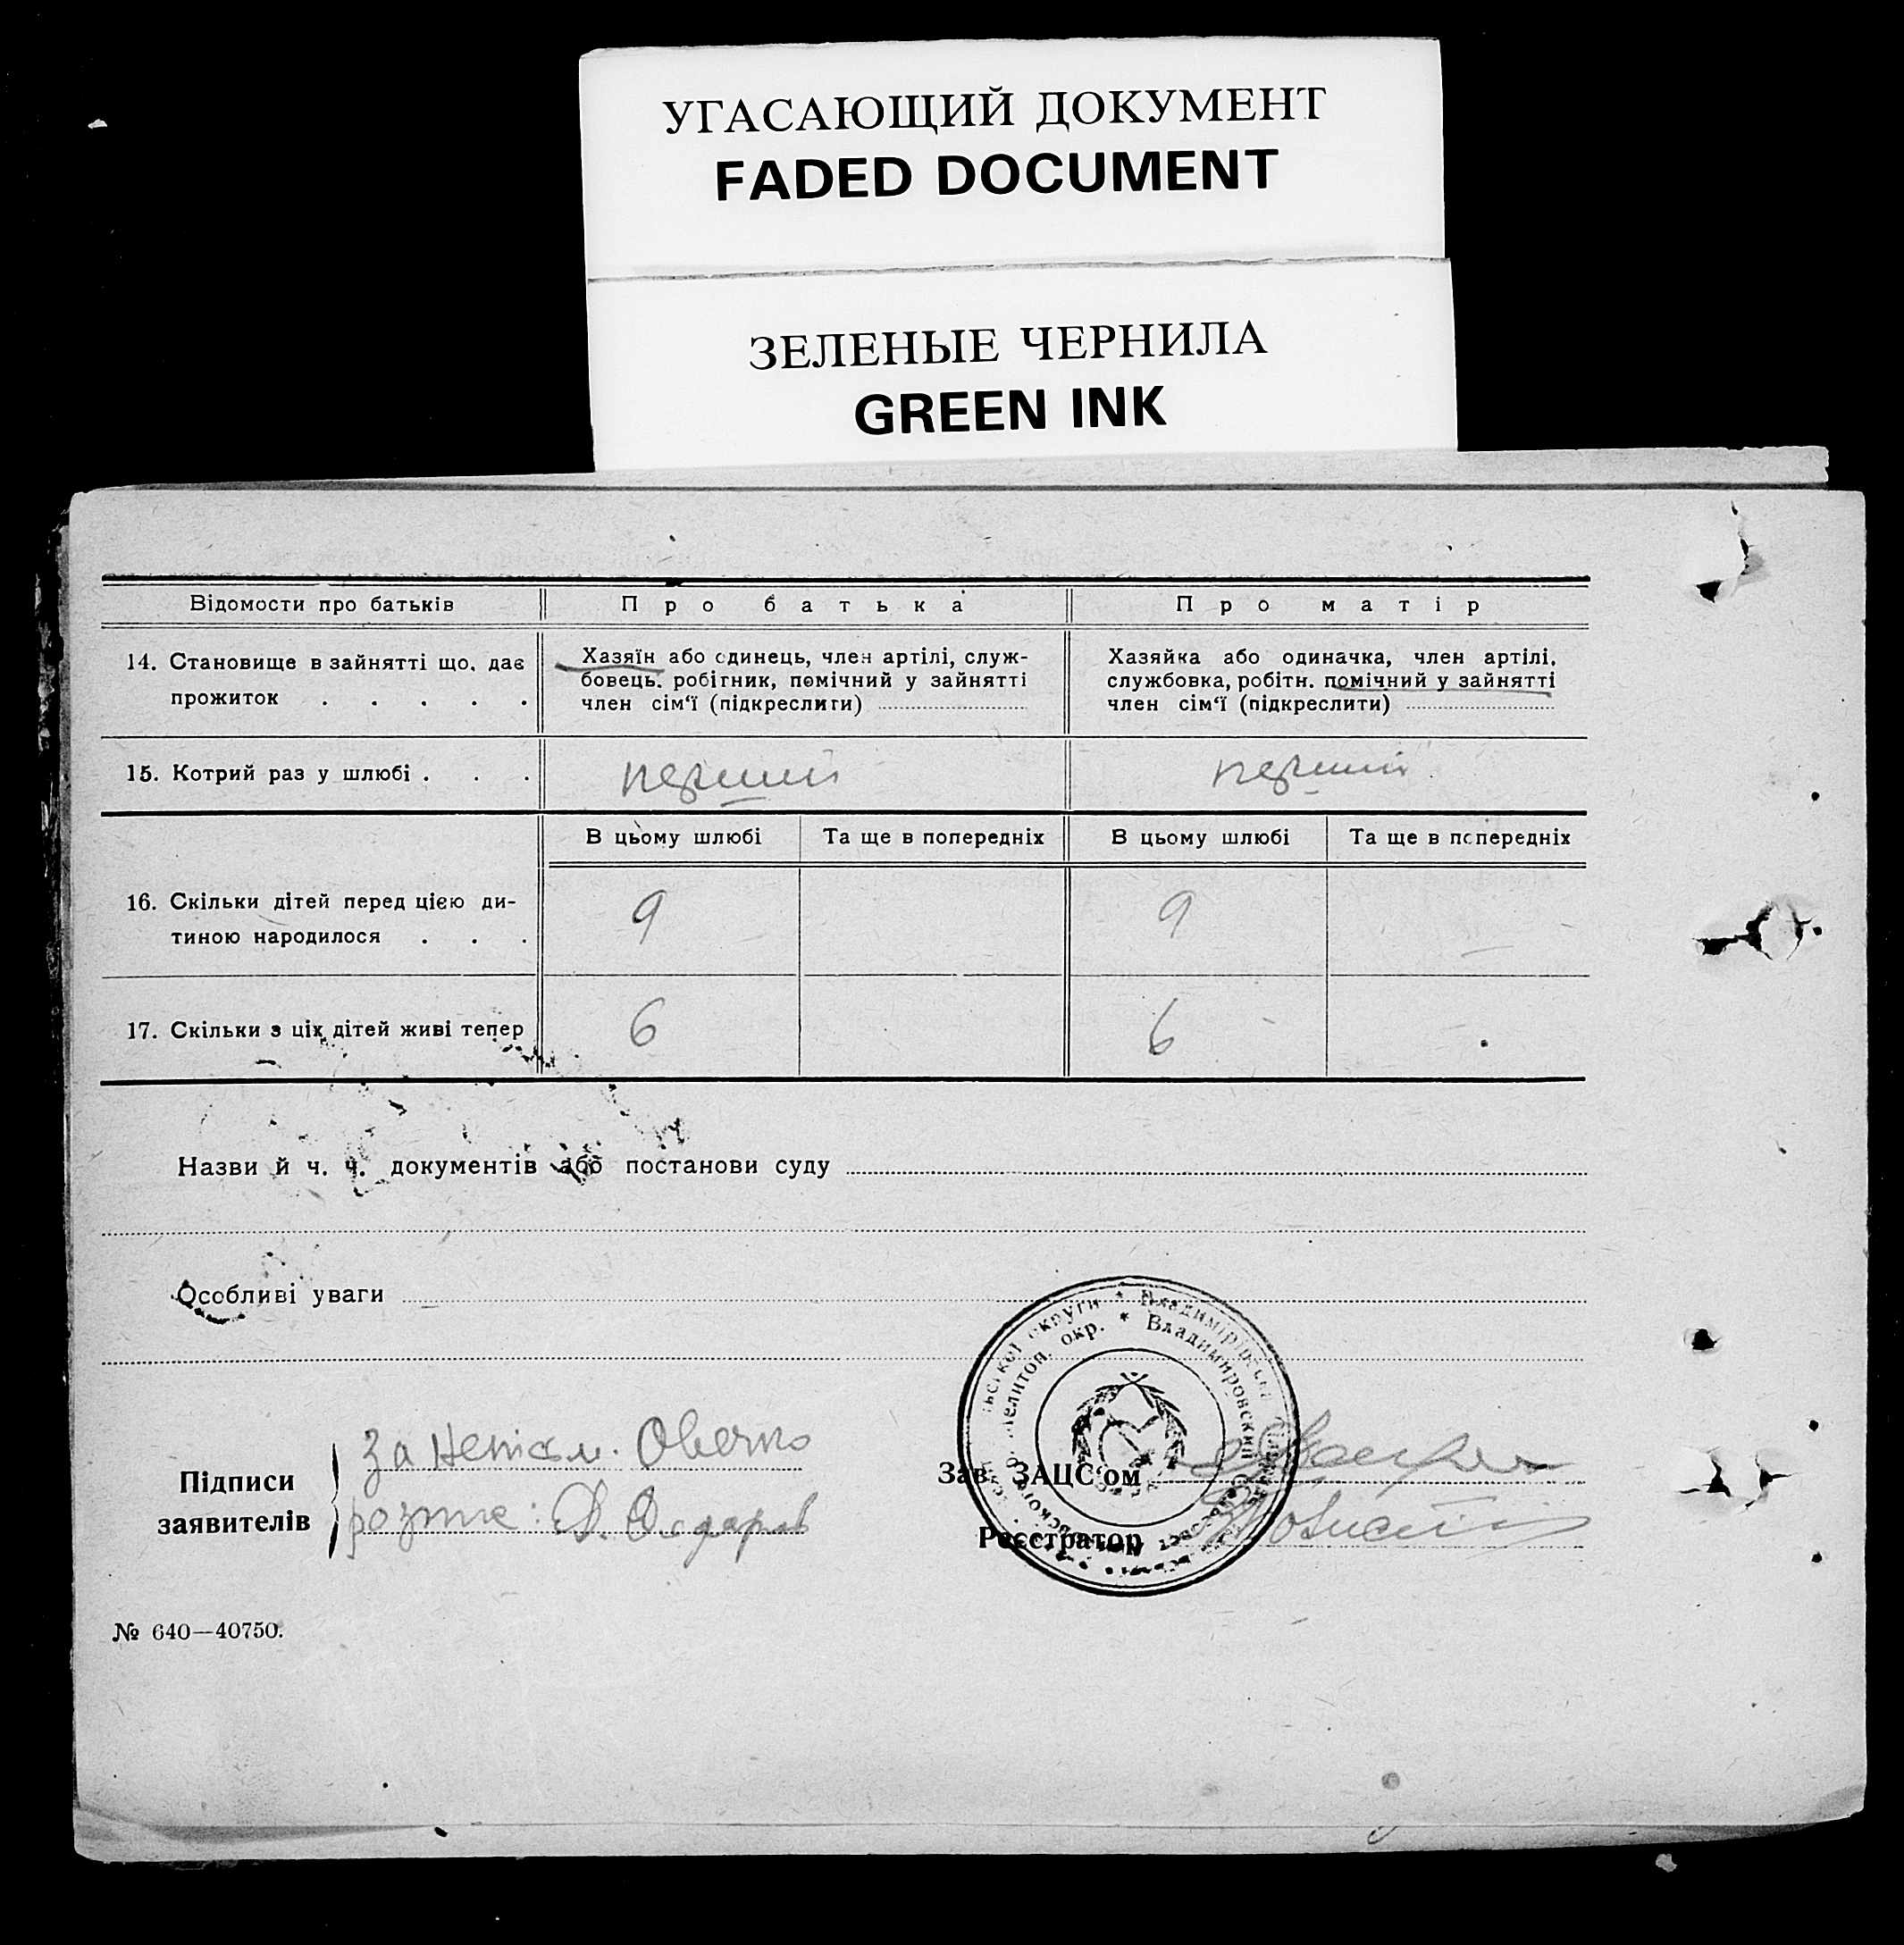 УГАСАЮЩИЙ ДОКУМЕНТ
FADED DOCUMENT
ЗЕЛЕНЫЕ ЧЕРНИЛА
GREEN INK
Відомости про батьків Про батька Про матір
14. Становище в зайнятті що, дає
прожиток . . . . .
Хазяїн або одинець, член артілі, служ-
бовець, робітник, помічний у зайнятті
член сім‘ї (підкреслити)
Хазяйка або одиначка, член артілі,
службовка, робітн. помічний у зайнятті
член сім‘ї (підкреслити)
15. Котрий раз у шлюбі . . . перший перший
В цьому шлюбі Та ще в попередніх В цьому шлюбі Та ще в попередніх
16. Скільки дітей перед цією ди-
тиною народилося . . . 9 9
17. Скільки з ціх дітей живі тепер 6 6
Назви й ч. ч. документів або постанови суду
Особливі уваги
округи * Владимірівськ
окр. * Владимировский
Підписи
заявителів
За Неписм. Овечко
розпис: Д.
Зав. ЗАЦС‘ом
Реєстратор
№ 640—40750.